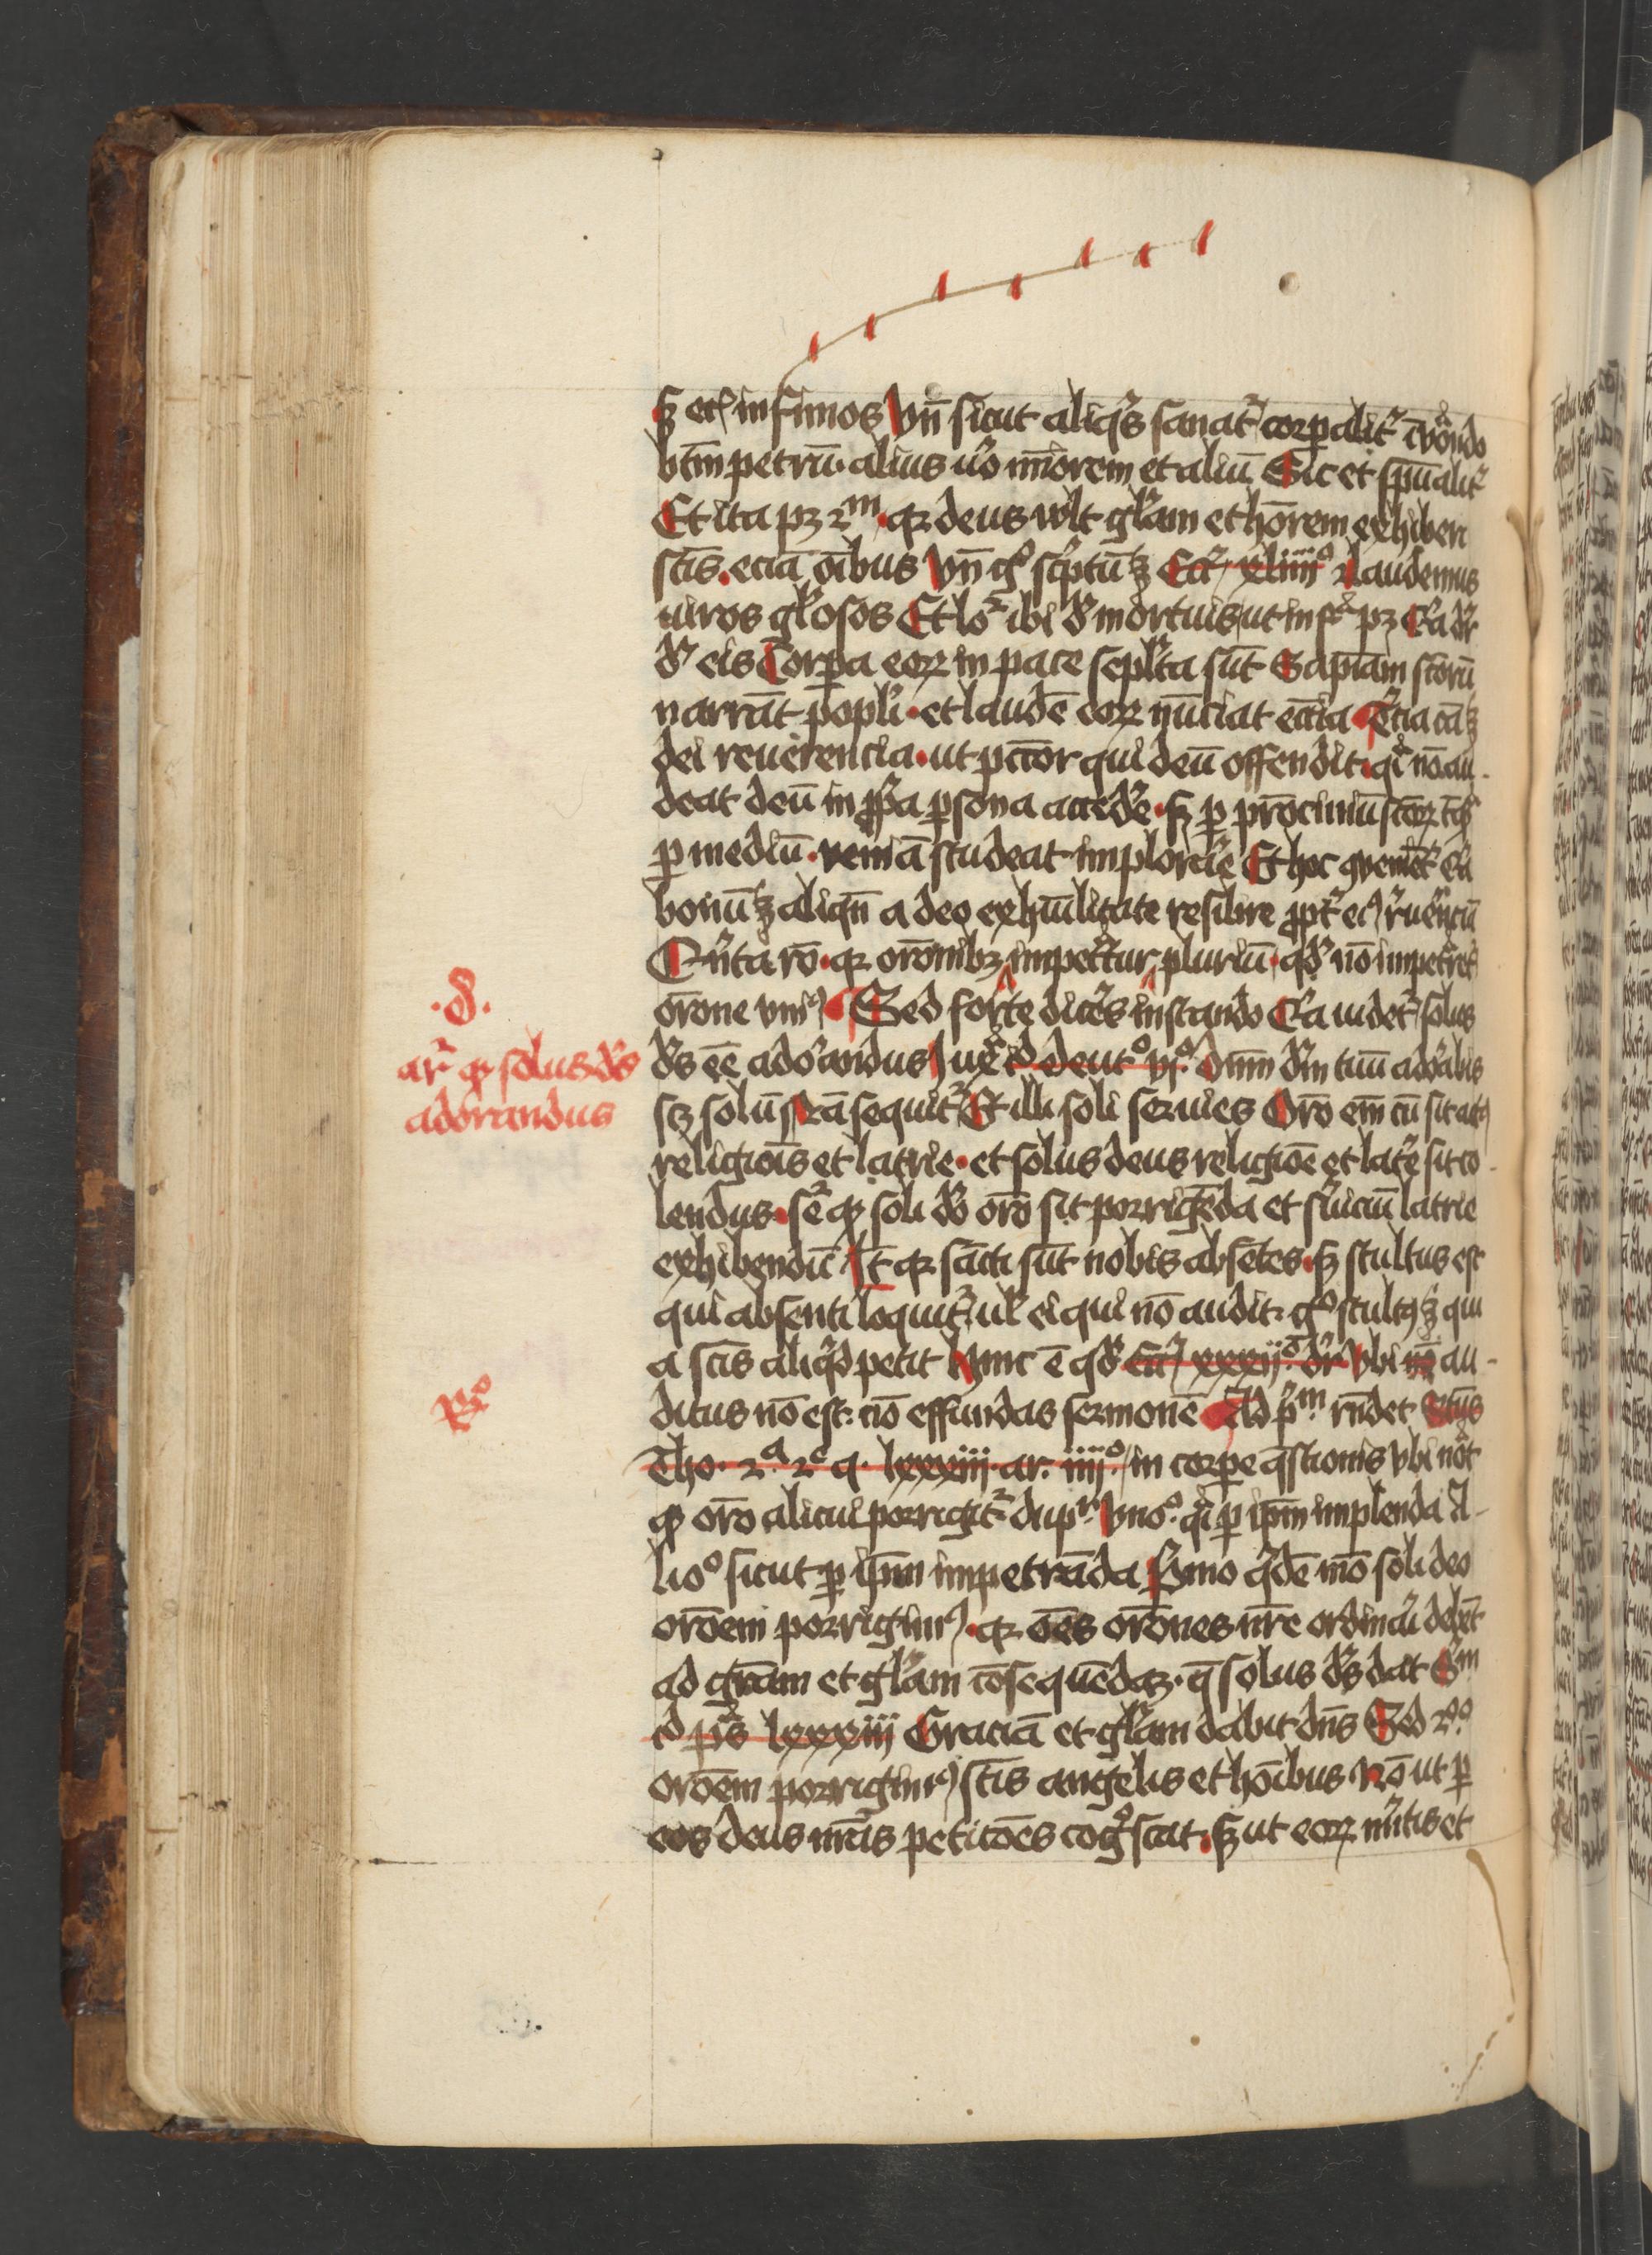 sꝫ etꝭ infimos Vn̄ sicut aliqͥs sanat᷑ corporalit᷑ īuocādo
btm̄ petrū· alius uo mīorem et aliū Sic et spūalit᷑
Et ita pꝫ 2ᵐ· qꝛ deus wlt gl'am et ho᷑rem exhiberi
scīs· eciā oībus Vn̄ g° sc̓ptū ē Ecc̓ xliiii° Laudemus
uiros gl'osos Et lo᷑ ibi de mortuis ut infᵃ pꝫ Q̓a dr̄
de eis Corpa eoꝝ in pace sepl'ta sūt Sapiam sc̄orū
narrāt popl'i· et laudē eoꝝ nūciat eccīa Tercia cā ē
dei reuerencia· ut pccōr qui deū offendit· qͥ nō au-
deat deū in ꝓp̓a ꝑsona accede᷑· sꝫ ꝑ pat᷑ociniū sc̄oꝝ tqᷓ
ꝑ mediū· veniā studeat implora᷑e Et hoc ꝯuenit
bonū ē aliqn̄ a deo ex hūilitate resilire ꝓpt᷑ eiꝰ reuērciā
Qͣrta rō· qꝛ orōnibꝫ impetᷓtur pluriū· qd̓ nō impetᷓret᷑
orōne vniꝰ Sed forte dices instando Q̓a uidet᷑ solus
ds̓ eē adorandus iux̄ id deut° vi° Dnm̄ dm̄ tuū adorabis
scꝫ solū Nā sequit᷑ Et illi soli seruies Orō em̄ cū sit actꝰ
religiōis et latrie· et solus deus religiōe et lat᷑e sit co-
lendus· se᷑ qꝫ soli deo orō sit porrigēda et s̓uiciū latrie
exhibendū It̄ qꝛ sāncti sūt nobis absētes· sꝫ stultus est
qui absenti loquit᷑ ul' ei qui nō audit· g° stultꝰ ē qui
a scīs aliqͥd petit Hinc ē qd̓ Ecc̓ xxxii° dr̄ Vbi nō au-
ditus nō est· nō effundas sermonē Ad pͥmᵐ rn̄det sctus
Tho· 2ᵃ 2ᵉ q· lxxxiii· ar· iiii° in corpe q̄stionis vbi notᷓt
qꝫ orō alicui porrigit᷑ dupʳ Vno° qͣi ꝑ ip̄m implenda A-
lio° sicut ꝑ ip̄m impetrāda Pͥmo qͥdē mō soli deo
orōem porrigimꝰ· qꝛ oēs orōnes nr̄e ordinai debēt
ad grām et gl'am cōsequēdaꝫ· q̄ solus ds̓ dat Sᵐ
id ps̓ lxxxiii Graciā et gl'am dabit dn̄s Sed 2°
orōem porrigimꝰ scīs angelis et hoībus Nō ut ꝑ
eos deus nr̄as peticōes cogͦscat· sꝫ ut eoꝝ mͥtis et
·d·
ar̄ qꝫ solus ds̓
adorandus
Rͦ